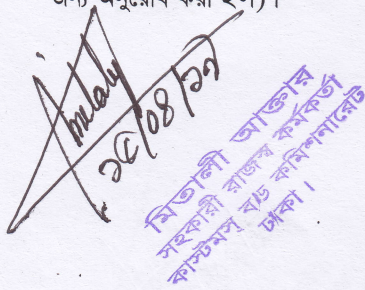 জন্য অনুরোধ করা হল)।
Mitaly
১৫/০৪/১৭
মিতালী আক্তার
সহকারী রাজস্ব কর্মকর্তা
কাস্টমস্ বন্ড কমিশনারেট
ঢাকা।